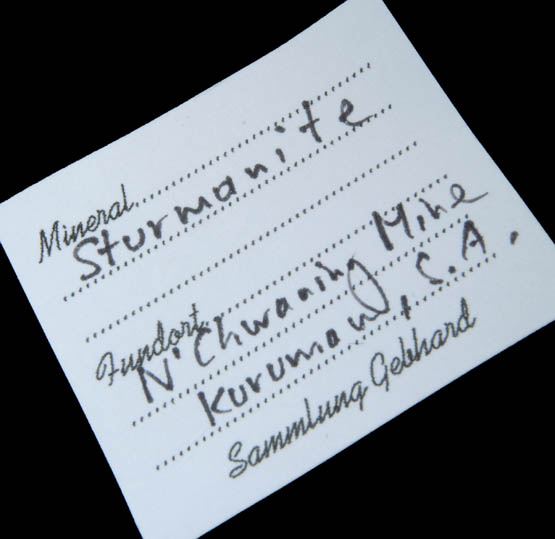 Mineral
Sturmanite
Fundort
N'Chwaning Mine
Kuruman, S.A.
Sammlung Gebhard